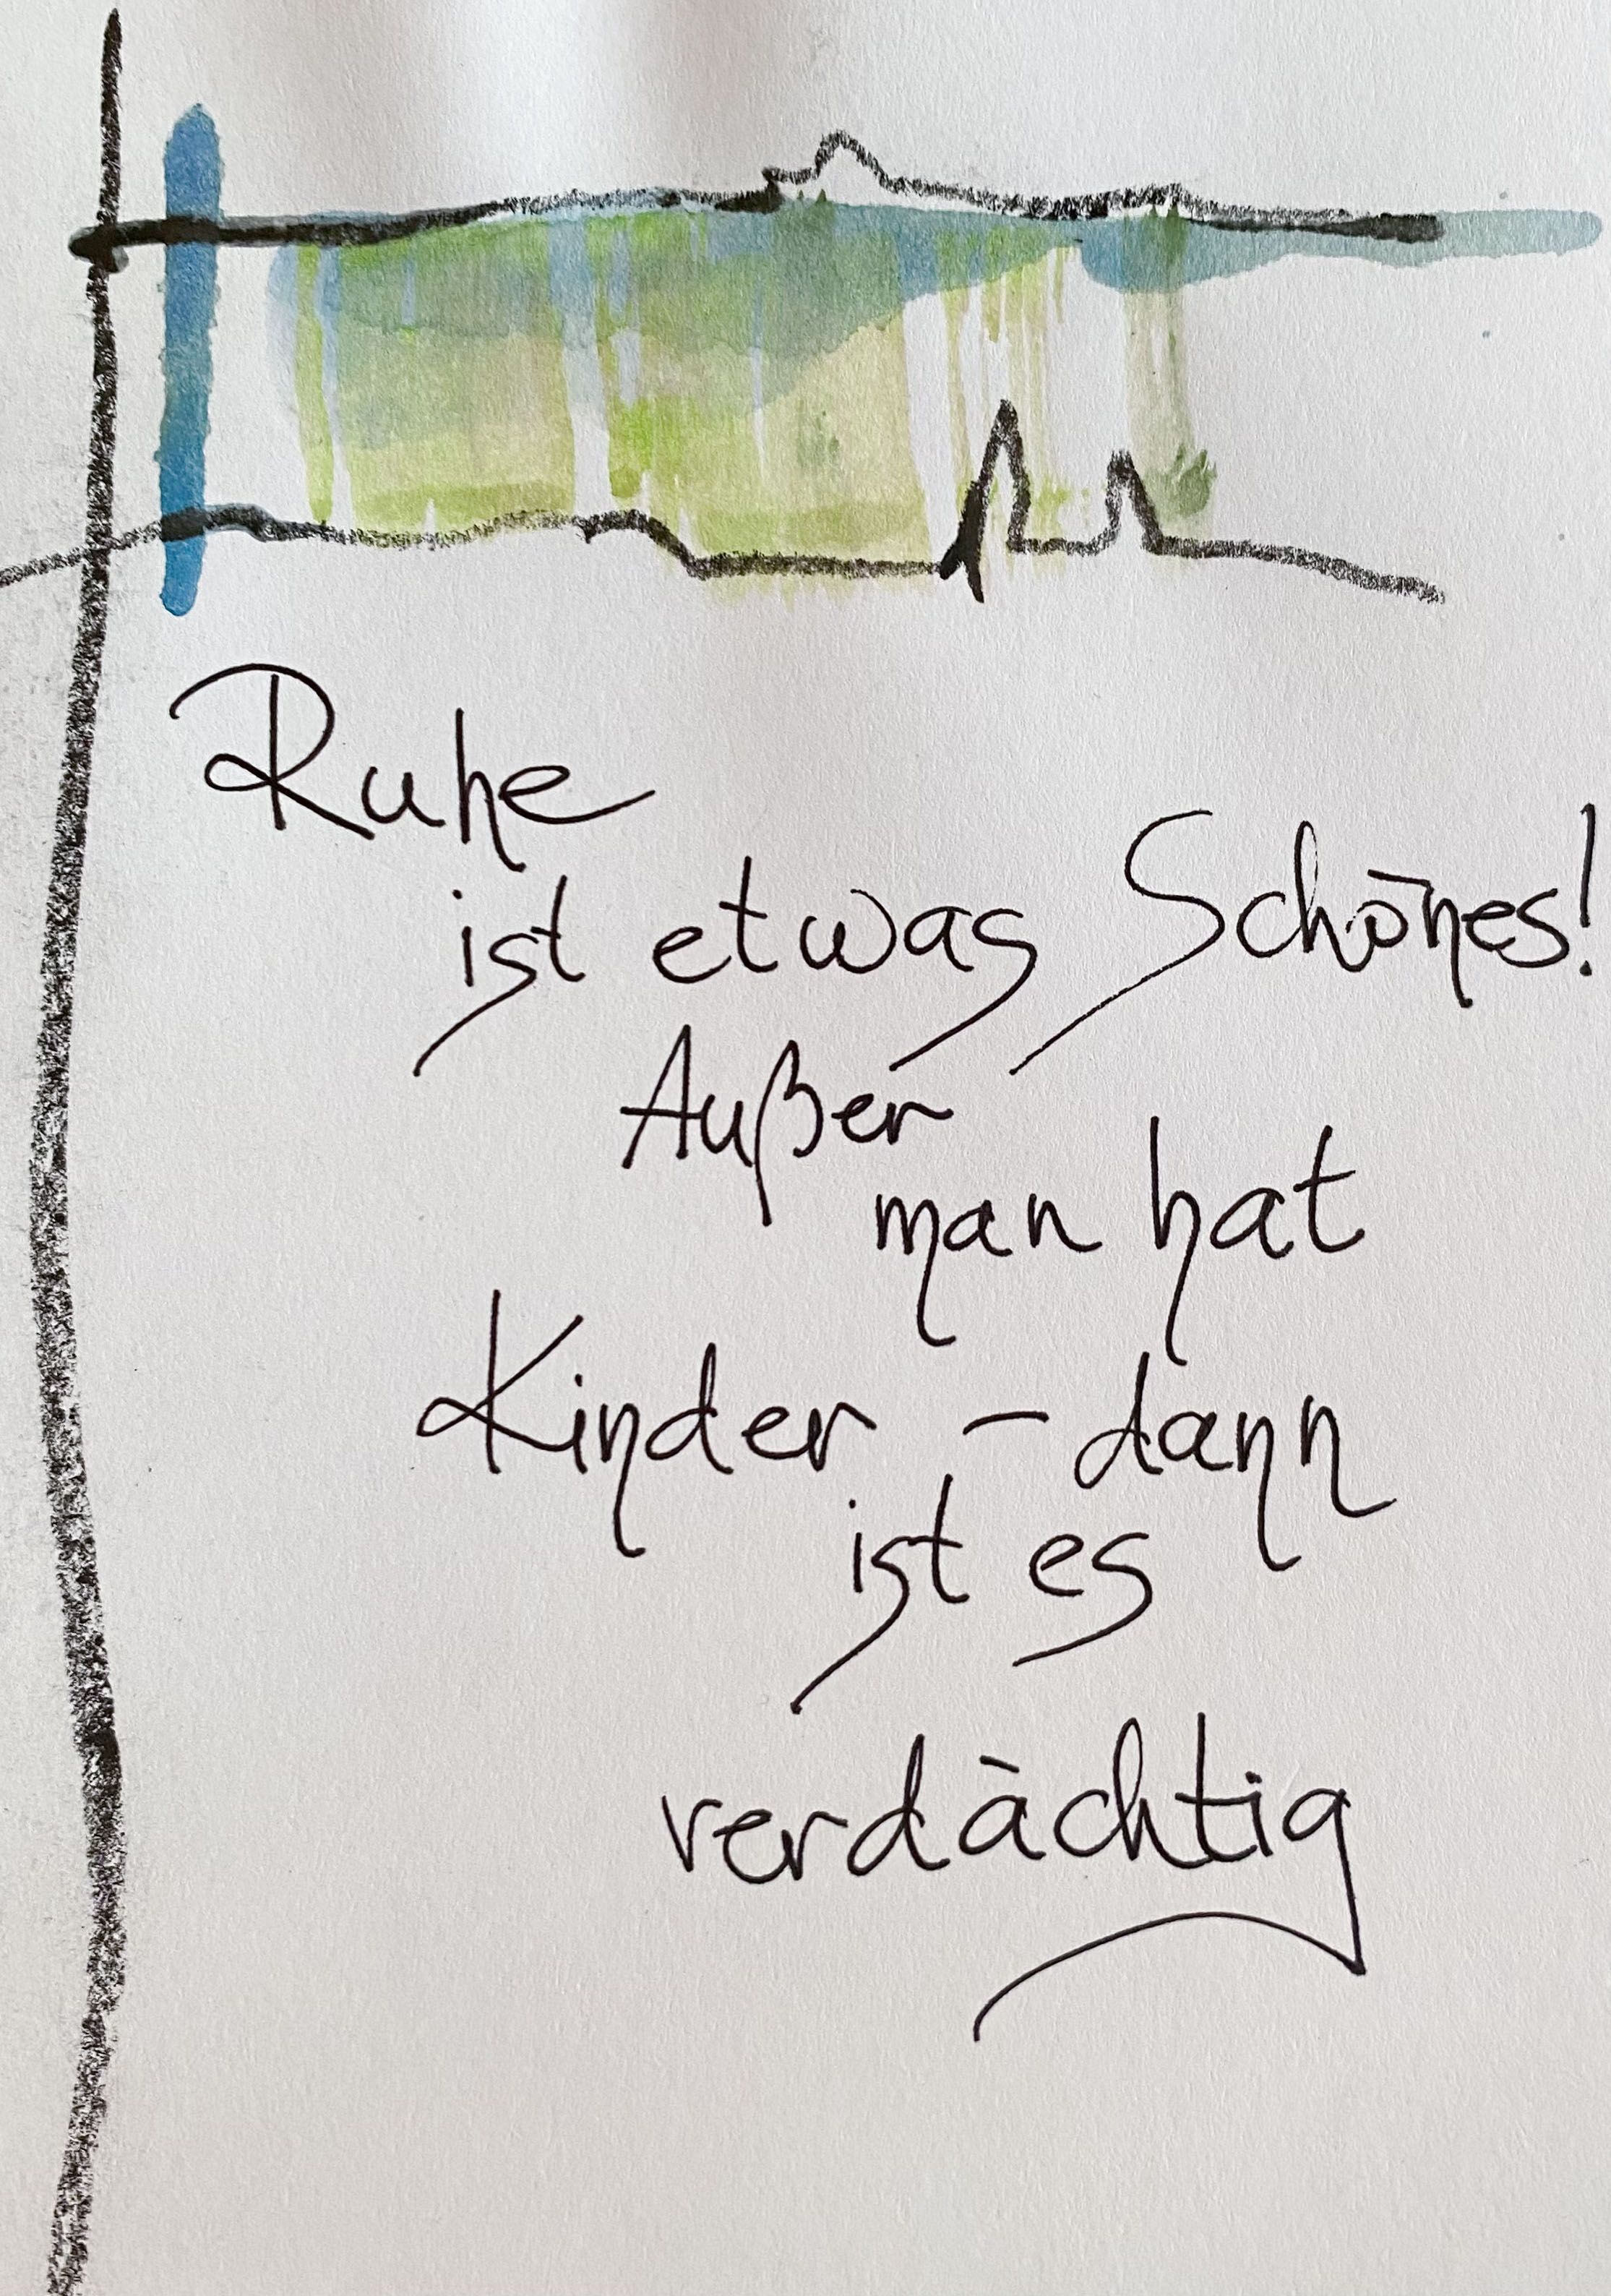 Ruhe
ist etwas Schönes!
Außer
man hat
Kinder - dann
ist es
verdächtig